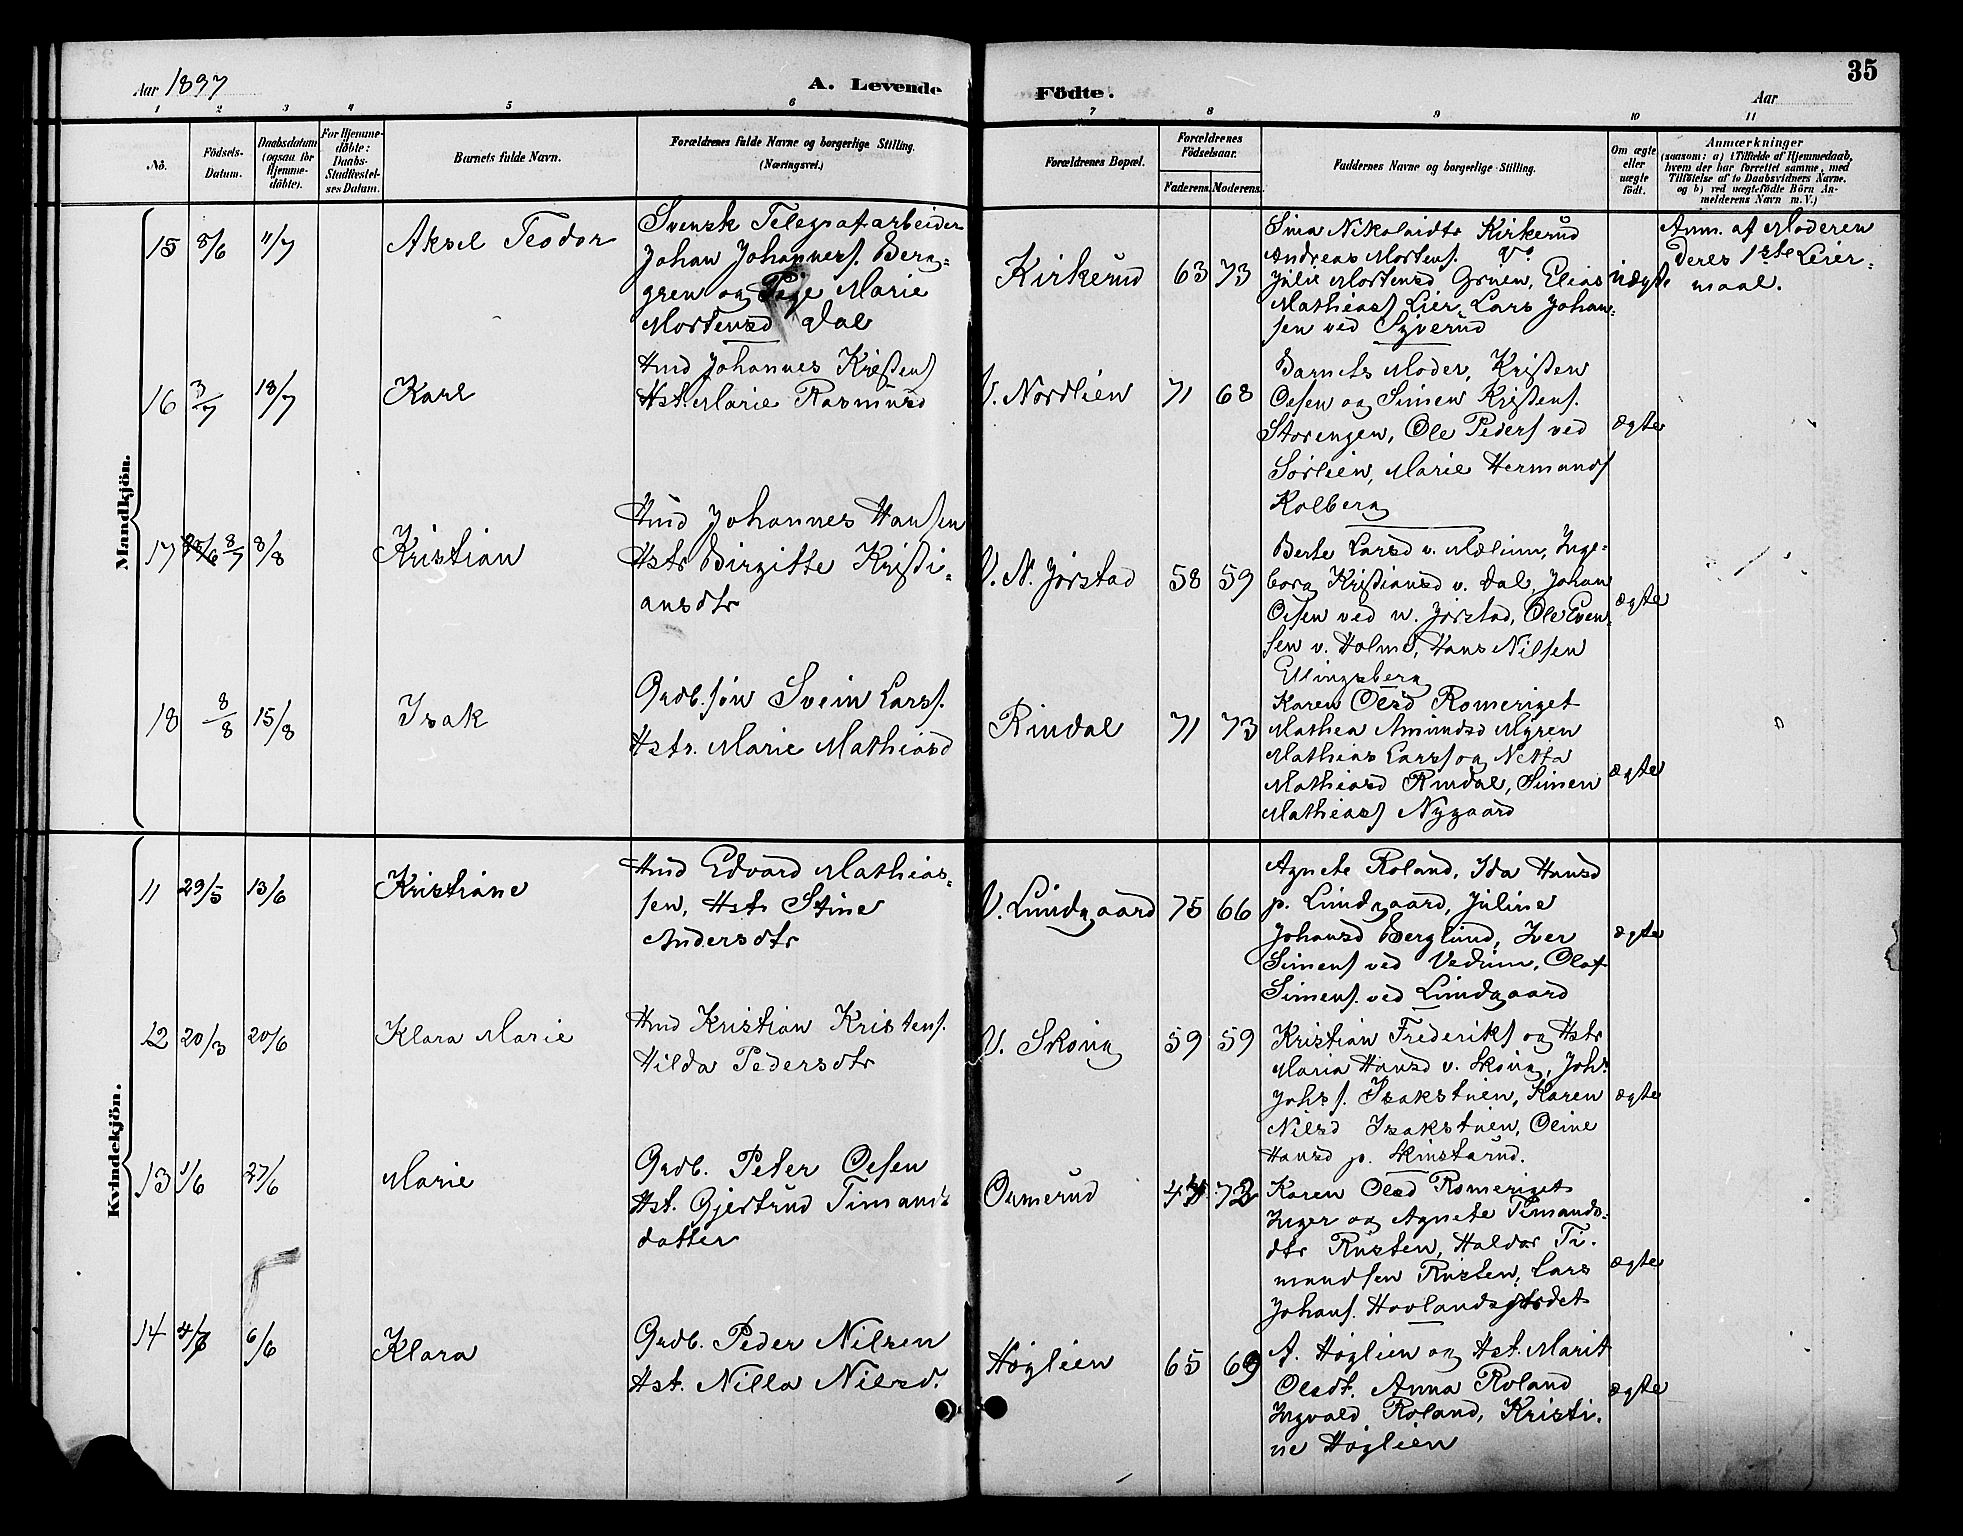 Aar 1897
A. Levende
Födte.
35
Aar
1 2 3 4 5 6 7 8 9 10 11
No.
Födsels-
Datum.
Daabsdatum
(ogsaa for
Hjemme-
döbte).
For Hjemme-
döbte:
Daabs-
Stadfæstel-
ses Datum.
Barnets fulde Navn.
Forældrenes fulde Navne og borgerlige Stilling.
(Næringsvei.)
Forældrenes Bopæl.
Forældrenes
Födselsaar.
Faderens. Moderens.
Faddernes Navne og borgerlige Stilling.
Om ægte
eller
uægte
födt.
Anmærkninger
(saasom: a) i Tilfælde af Hjemmedaab,
hvem der har forrettet samme, med
Tilföielse af to Daabsvidners Navne.
og b) ved uægtefödte Börn An-
melderens Navn m. V.)
Mandkjön.
15 8/6 11/7 Aksel Teodor
Svensk Telegrafarbeider
Johan Johannes. Berg-
gren og Pige Marie
Mortensd Dal
Kirkerud 63 73
Sina Nikolaidtr Kirkerud
Andreas Mortens.
Julie Mortensd Gruen, Elias
Mathiass Lier, Lars Johan-
sen ved Syverud
uægte
Anm. af Moderen
Deres 1ste Leier-
maal.
16 3/7 18/7 Karl
Hmd Johannes Kristens
Hst. Marie Rasmusd
V. Nordlien 71 68
Barnets Moder, Kristen
Olsen og Simen Kristens.
Storengen, Ole Peders ved
Sørlien, Marie Hermands
Kolberg
ægte
17 8/7 8/8 Kristian
Hmd Johannes Hansen
Hstr Birgitte Kristi-
ansdtr
V. N. Jørstad 58 59
Berte Larsd v. Mælum, Inge-
borg Kristiansd v. Dal, Johan
Olsen ved n. Jørstad, Ole Even-
sen v. Holme, Hans Nilsen
Ellingsberg
ægte
18 8/8 15/8 Isak
Grdb. søn Svein Larss.
Hstr. Marie Mathiasd
Rindal 71 73
Karen Olsd Romeriget
Mathea Amundsd Myren
Mathias Larss og Netta
Mathiasd Rindal, Simen
Mathiass Nygaard
ægte
Kvindekjön.
11 29/5 13/6 Kristiane
Hmd Edvard Mathias-
sen, Hstr Stine
Andersdtr
V. Lundgaard 75 66
Agnete Roland, Ida Hansd
p. Lundgaard, Juline
Johansd Berglund, Iver
Simens ved Vedum, Olaf
Simens. ved Lundgaard
ægte
12 20/3 20/6 Klara Marie
Hmd Kristian Kristens.
Hilda Pedersdtr
V. Skoug 59 59
Kristian Frederiks og Hstr
Maria Hansd v. Skoug, Johs
Johss. Isakstuen, Karen
Nilsd Isakstuen, Oline
Hansd p. Skustarud.
ægte
13 1/6 27/6 Marie
Grdb. Peter Olsen
Hst. Gjertrud Timands
datter
Ormerud 72
Karen Olsd Romeriget
Inger og Agnete Timands-
dtr Rusten, Haldor Ti-
mandsen Rusten, Lars
Johans. Hovlandsjordet
ægte
14 6/6 Klara
Grdb. Peder Nilsen
Hst. Nilla Nilsd.
Høglien 65 69
A. Høglien og Hst. Marit
Olsdt. Anna Roland
Ingvald Roland, Kristi-
ne Høglien
ægte